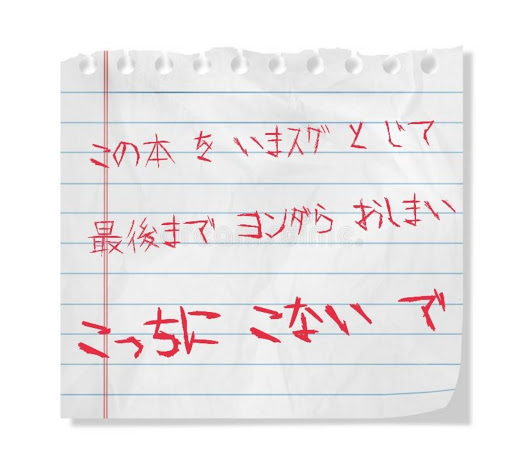 この本 を いまスグ と じて
最後まで ヨンダら おしまい
こっちに こない で